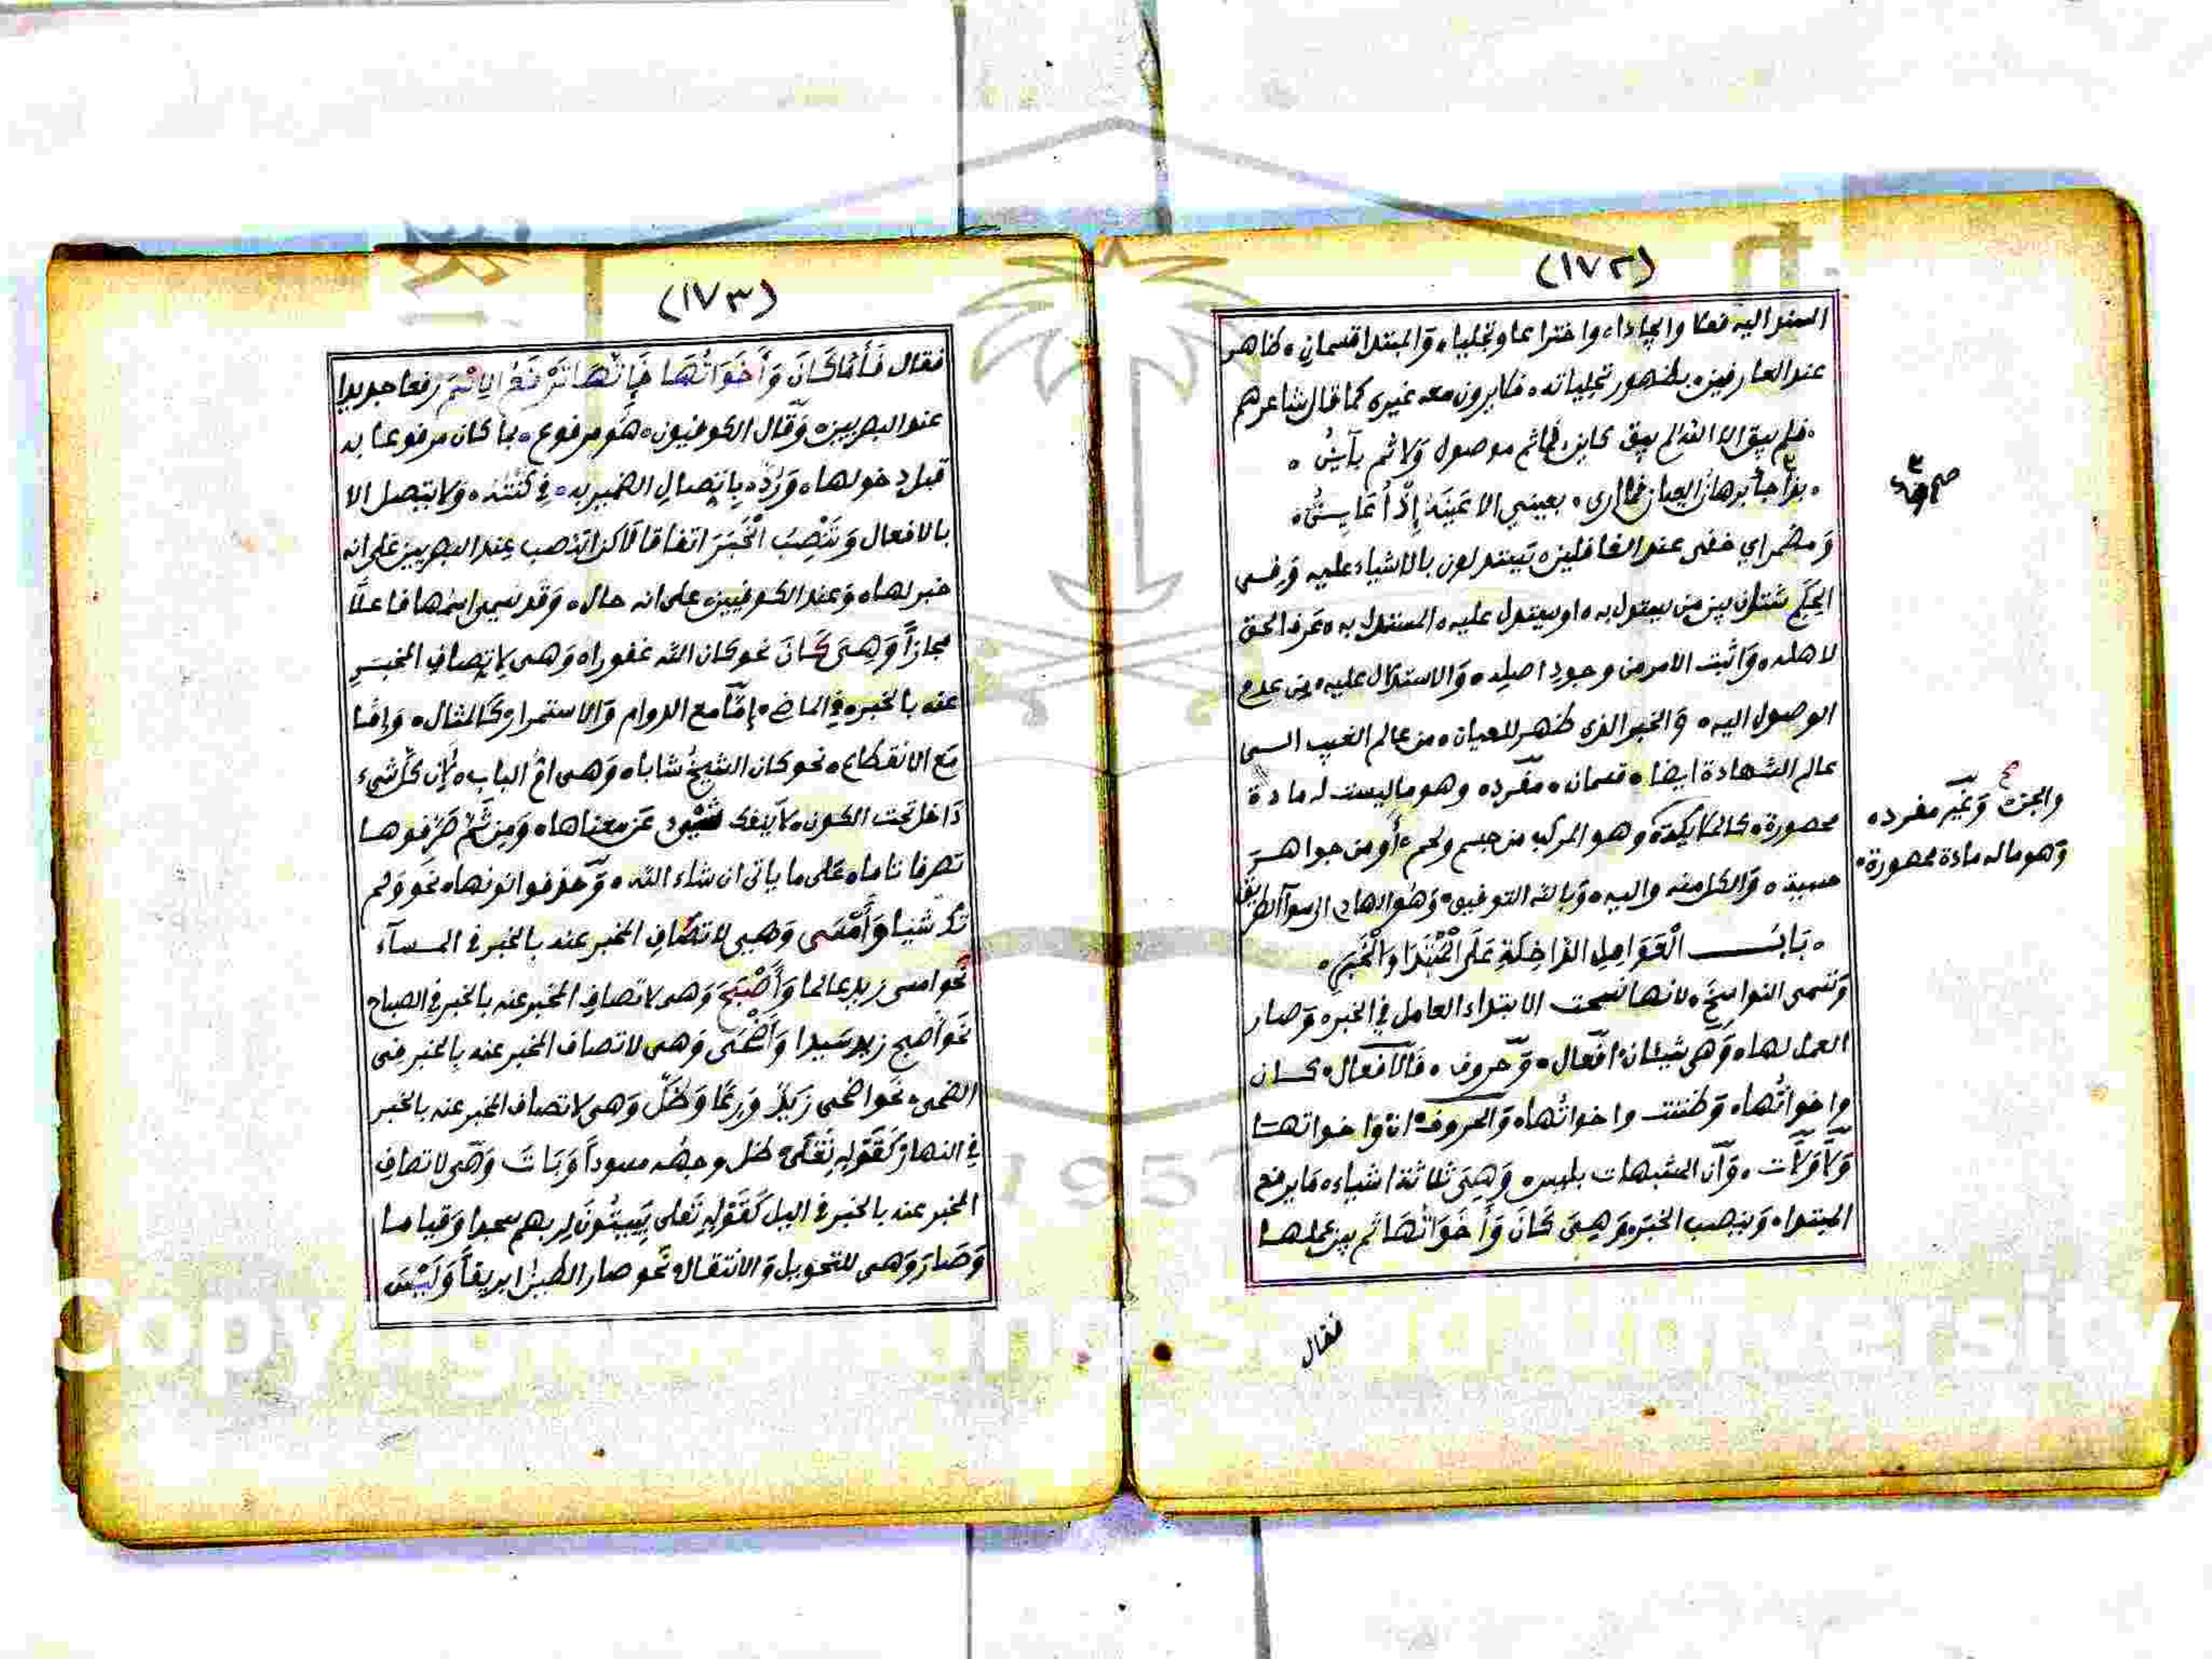 (١٧٢)
المسند اليه فعلا وايجادا، واختراعا وتجليا، وَالمبتدا قسمان، ظاهر
عند العارفين، بظهور تجلياته، فلا يرون معه غيره كما قال شاعرهم
فلم يبق الا الله لم يبق كاين، فما ثم موصول وَلا ثم بآين،
بذا جآ برهان العيان فما ارى، بعيني الا عَينَهُ إِذْ أُعَايِنُ،
وَمضمر اي خفى عند الغافلين، يستدلون بالاشياء عليه وَفى
الحِكَم شتان بين من يستدل به، او يستدل عليه، المستدل به، عَرف الحق
لاهله، وَاثبت الامر من وجود اصله، وَالاستدلال عليه، من عدم
الوصول اليه، وَالخبر الذى ظهر للعيان، من عالم الغيب الى
عالم الشهادة ايضا، قسمان، مفرد، وهو ماليست له مادة
محصورة، كالملايكة، وهو المركب من جسم ولحم، أو من جواهر
حسية، وَالكل منه واليه، وَبالله التوفيق، وَهُو الهادى الى سوآ الطريق
، بَابُ الْعَوَامِلِ الدَّاخِلَةِ عَلَى الْمُبْتَدَا وَالْخَبَرِ،
وَتسمى النواسخ، لانها نسخت الابتداء العامل في الخبر، وَصار
العمل لها، وَهى شيئان، افعال، وَحروف، فَالافعال، كان
واخواتُها، وَظننت واخواتُها، وَالحروف، انّ واخواتها
وَلا وَلات، وَان المشبهات بليس، وَهِيَ ثلاثة اشياء، مَا يرفع
المبتدا، وَينصب الخبَر، وَهِيَ كَانَ وَأَخَوَاتُهَا ثم بين عملها
فقال
صح
والجن، وَغير مفرد،
وَهو ماله مادة محصورة،
(١٧٣)
فقال فَأَمَّا كَانَ وَأَخَوَاتُهَا فَإِنَّهَا تَرْفَعُ الاِسْمَ رفعا جديدا
عند البصريين، وَقال الكوفيون، هُو مرفوع، بما كان مرفوعا به
قبل دخولها، وَرُدَّ، بِاتصالِ الضمير به، فِي كُنْتُهُ، وَلا يتصل الا
بالافعال وَتَنْصِبُ الْخَبَرَ اتفاقا لاكن انتصب عِند البصريين على انه
خبر لها، وَعند الكوفيين، على انه حال، وَقد سُمى اسمُها فاعلًا
مجازاً وَهِيَ كَانَ نحو كان الله غفورا، وَهى لاتصاف المخبَرِ
عنه بالخبر، فِي الماضى، إِمَّا مع الدوام وَالاستمرار، كالمثال، وَإما
مَع الانقطاع، نحو كان الشيخُ شابا، وَهى امُّ الباب، لأن كل شيء
دَاخل تحت الكون، لاينفك عَن معناها، وَمِن ثَمَّ صَرَفوها
تصرفا تاما، عَلى ما ياتى ان شاء الله، وَحذفوا نونها، نَحو وَلم
تك شيئا وَأَمْسَى وَهي لاتصاف المخبر عنه بالخبر فى المسآء
نحو امسى زيد عالما وَأَصْبَحَ وَهى لاتصاف المخبر عنه بالخبر في الصباح
نَحو أَصبح زيد سَيدا وَأَضْحَى وَهى لاتصاف المخبر عنه بالخبر فى
الضحى، نَحو اضحى زَيدٌ وَرِعًا وَظَلَّ وَهى لاتصاف المخبر عنه بالخبر
فِي النهار، كَقَوْلِهِ تَعَلَى، ظل وجهُه مسوداً وَبَاتَ وَهى لاتصاف
المخبر عنه بالخبر فى اليل كَقَوْلِهِ تَعلى يَبِيتُونَ لِربهم سجدا وَقياما
وَصَارَ وَهى للتحويل وَالانتقال، نَحو صار الطين ابريقاً وَلَيْسَ